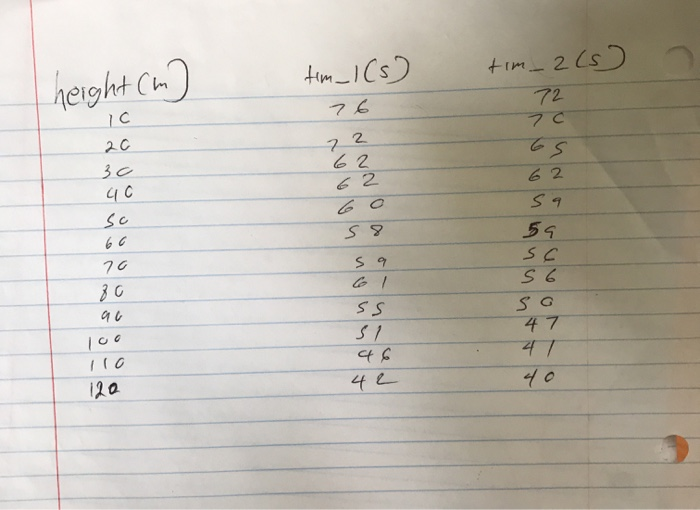 height (m) tim_1(s) tim_2(s)
10 76 72
20 72 70
30 62 65
40 62 62
50 60 59
60 58 59
70 59 56
80 61 56
90 55 50
100 51 47
110 46 41
120 42 40